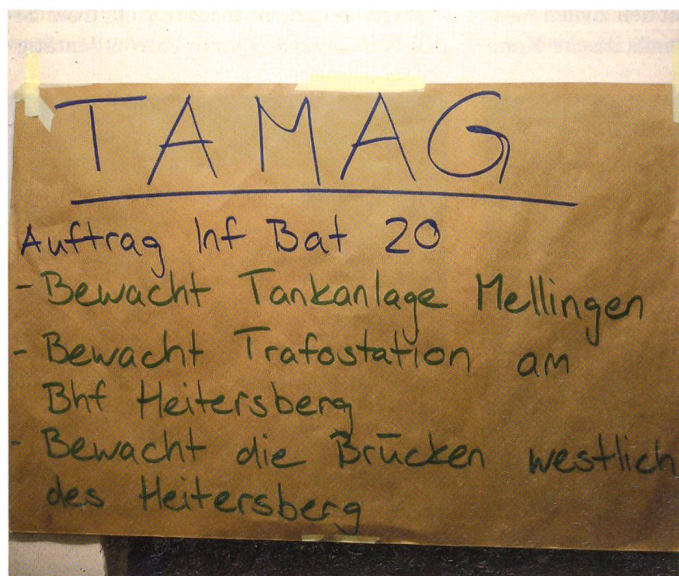 TAMAG
Auftrag Inf Bat 20
- Bewacht Tankanlage Mellingen
- Bewacht Trafostation am
Bhf Heitersberg
- Bewacht die Brücken westlich
des Heitersberg